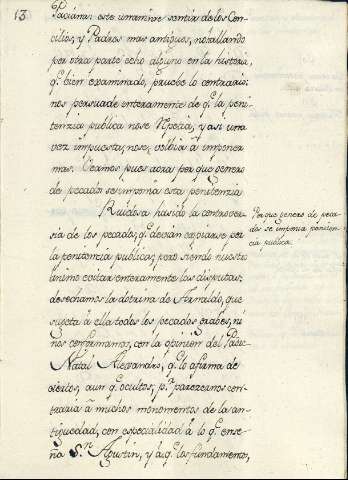 13.
Paciano: este unanime sentir de los Con-
cilios, y Padres mas antiguos, no allando
por otra parte echo alguno en la historia,
q.e bien examinado, pruebe lo contrario:
nos persuade enteramente de q.e la peni-
tenzia publica no se repetia, y asi una
vez impuesta, no se volvia à imponer
mas. Veamos pues aora por que genero
de pecados se imponia esta penitenzia
Ruidosa ha sido la controver-
sia de los pecados, q.e devian expiarse por
la penitenzia publica; pero siendo nuestro
ánimo evitar enteramente las disputas;
desechamos la dotrina de Arnaldo, que
sujeta à ella todos los pecados graves, ni
nos conformamos, con la opinion del Padre
Natal Alessandro, q.e lo afirma de
ciertos, aun q.e ocultos, p.r parezernos con-
traria à muchos monumentos de la an-
tiguedad, con especialidad à lo q.e ense-
ña S.n Agustin, y à q.e los fundamentos,
Por que genero de peca-
dos se imponia peniten-
cia publica.